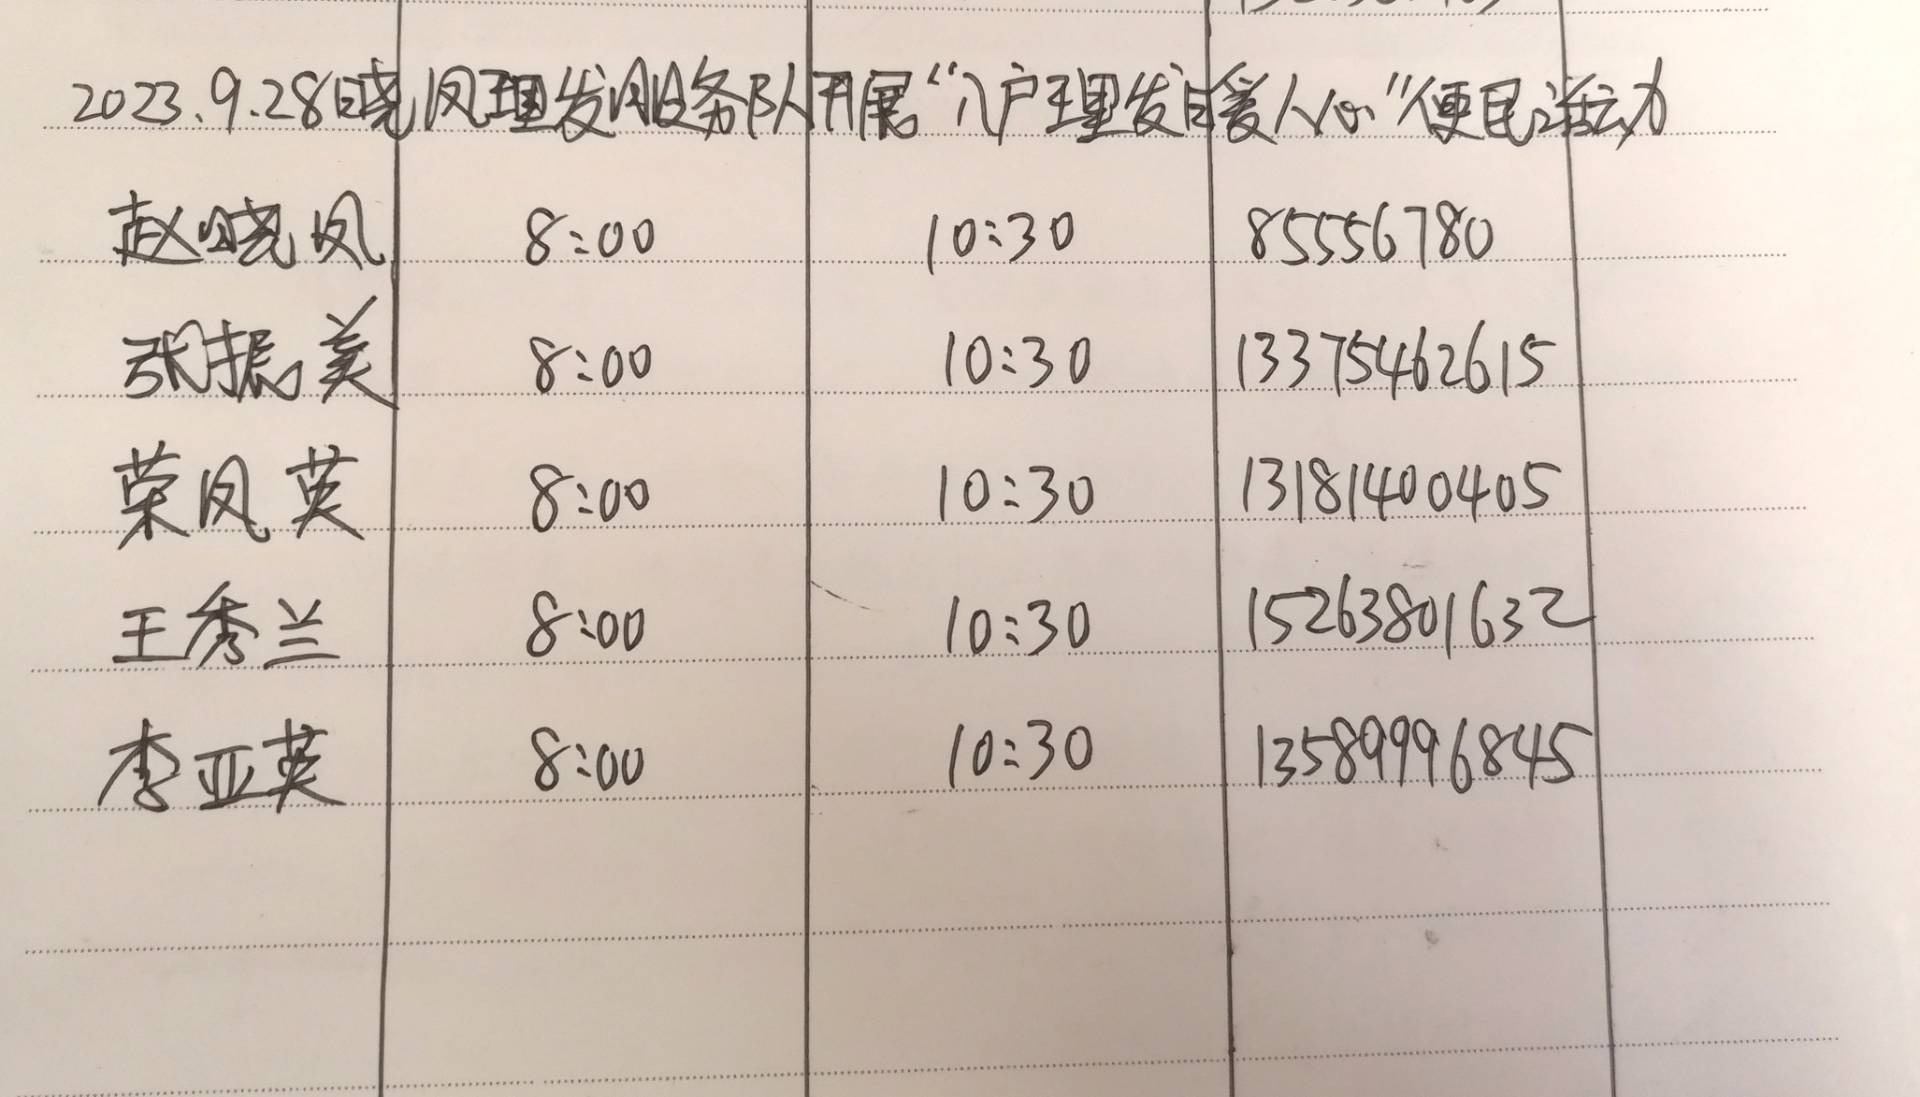 2023.9.28晓凤理发服务队开展“入户理发暖人心”便民活动
赵晓凤 8:00 10:30 85556780
张振美 8:00 10:30 13375462615
荣凤英 8:00 10:30 13181400405
王秀兰 8:00 10:30 15263801632
李亚英 8:00 10:30 13589996845